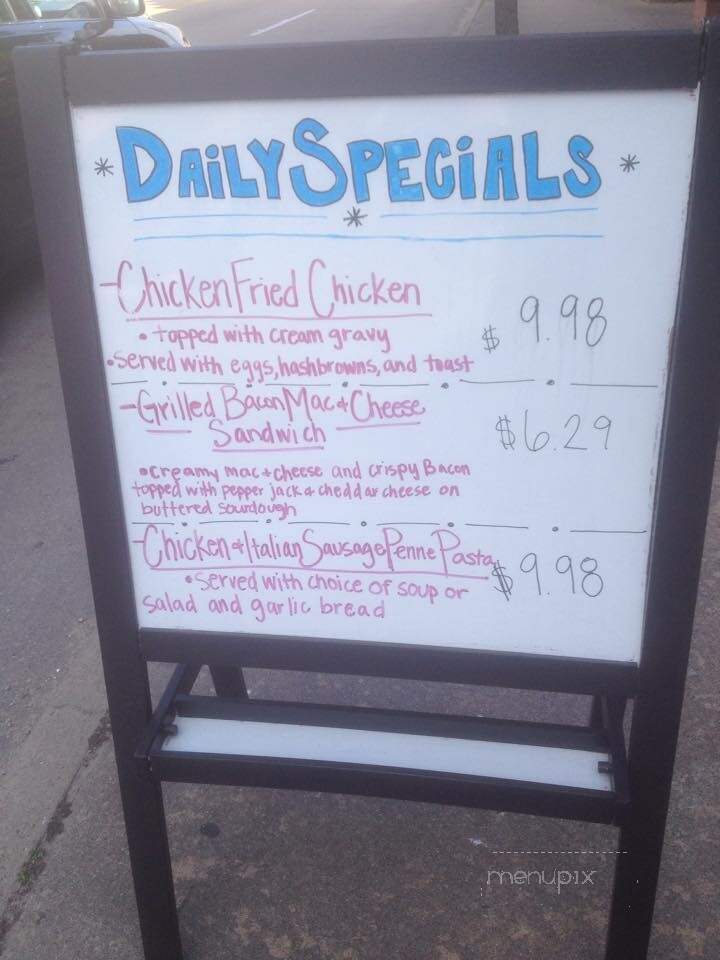 * DAiLY SPECiALS *
*
-Chicken Fried Chicken
• topped with cream gravy
$ 9.98
• Served with eggs, hashbrowns, and toast
-Grilled Bacon Mac + Cheese
Sandwich
$6.29
• creamy mac + cheese and crispy Bacon
topped with pepper jack & cheddar cheese on
buttered sourdough
-Chicken & Italian Sausage Penne Pasta
$9.98
• Served with choice of soup or
salad and garlic bread
menupix